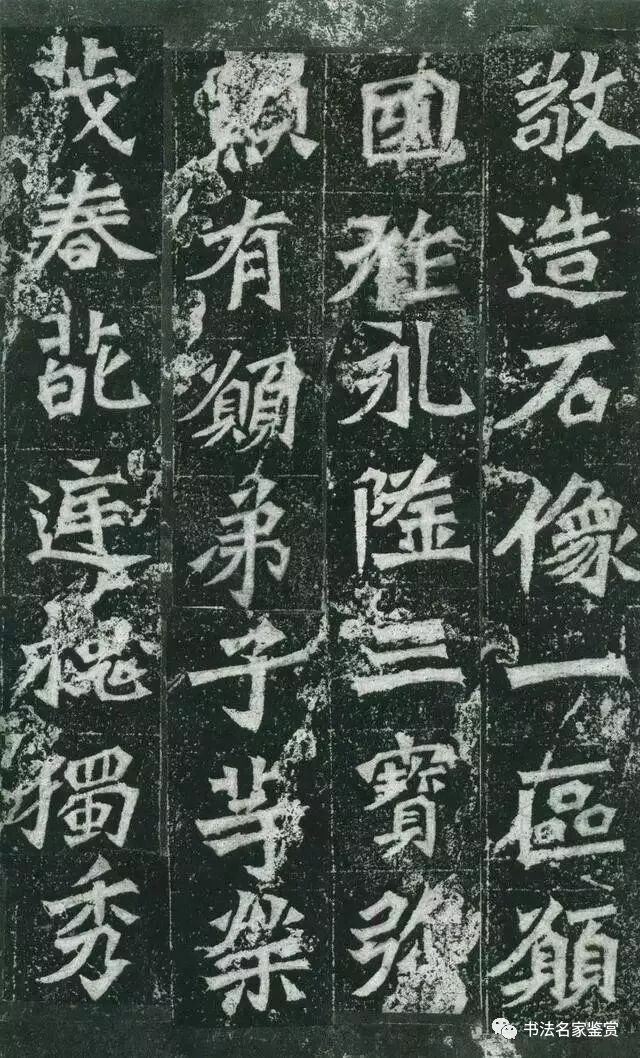 敬造石像一區願
國祚永隆三寶弥
顯有願弟子等榮
茂春葩遅槐獨秀
书法名家鉴赏